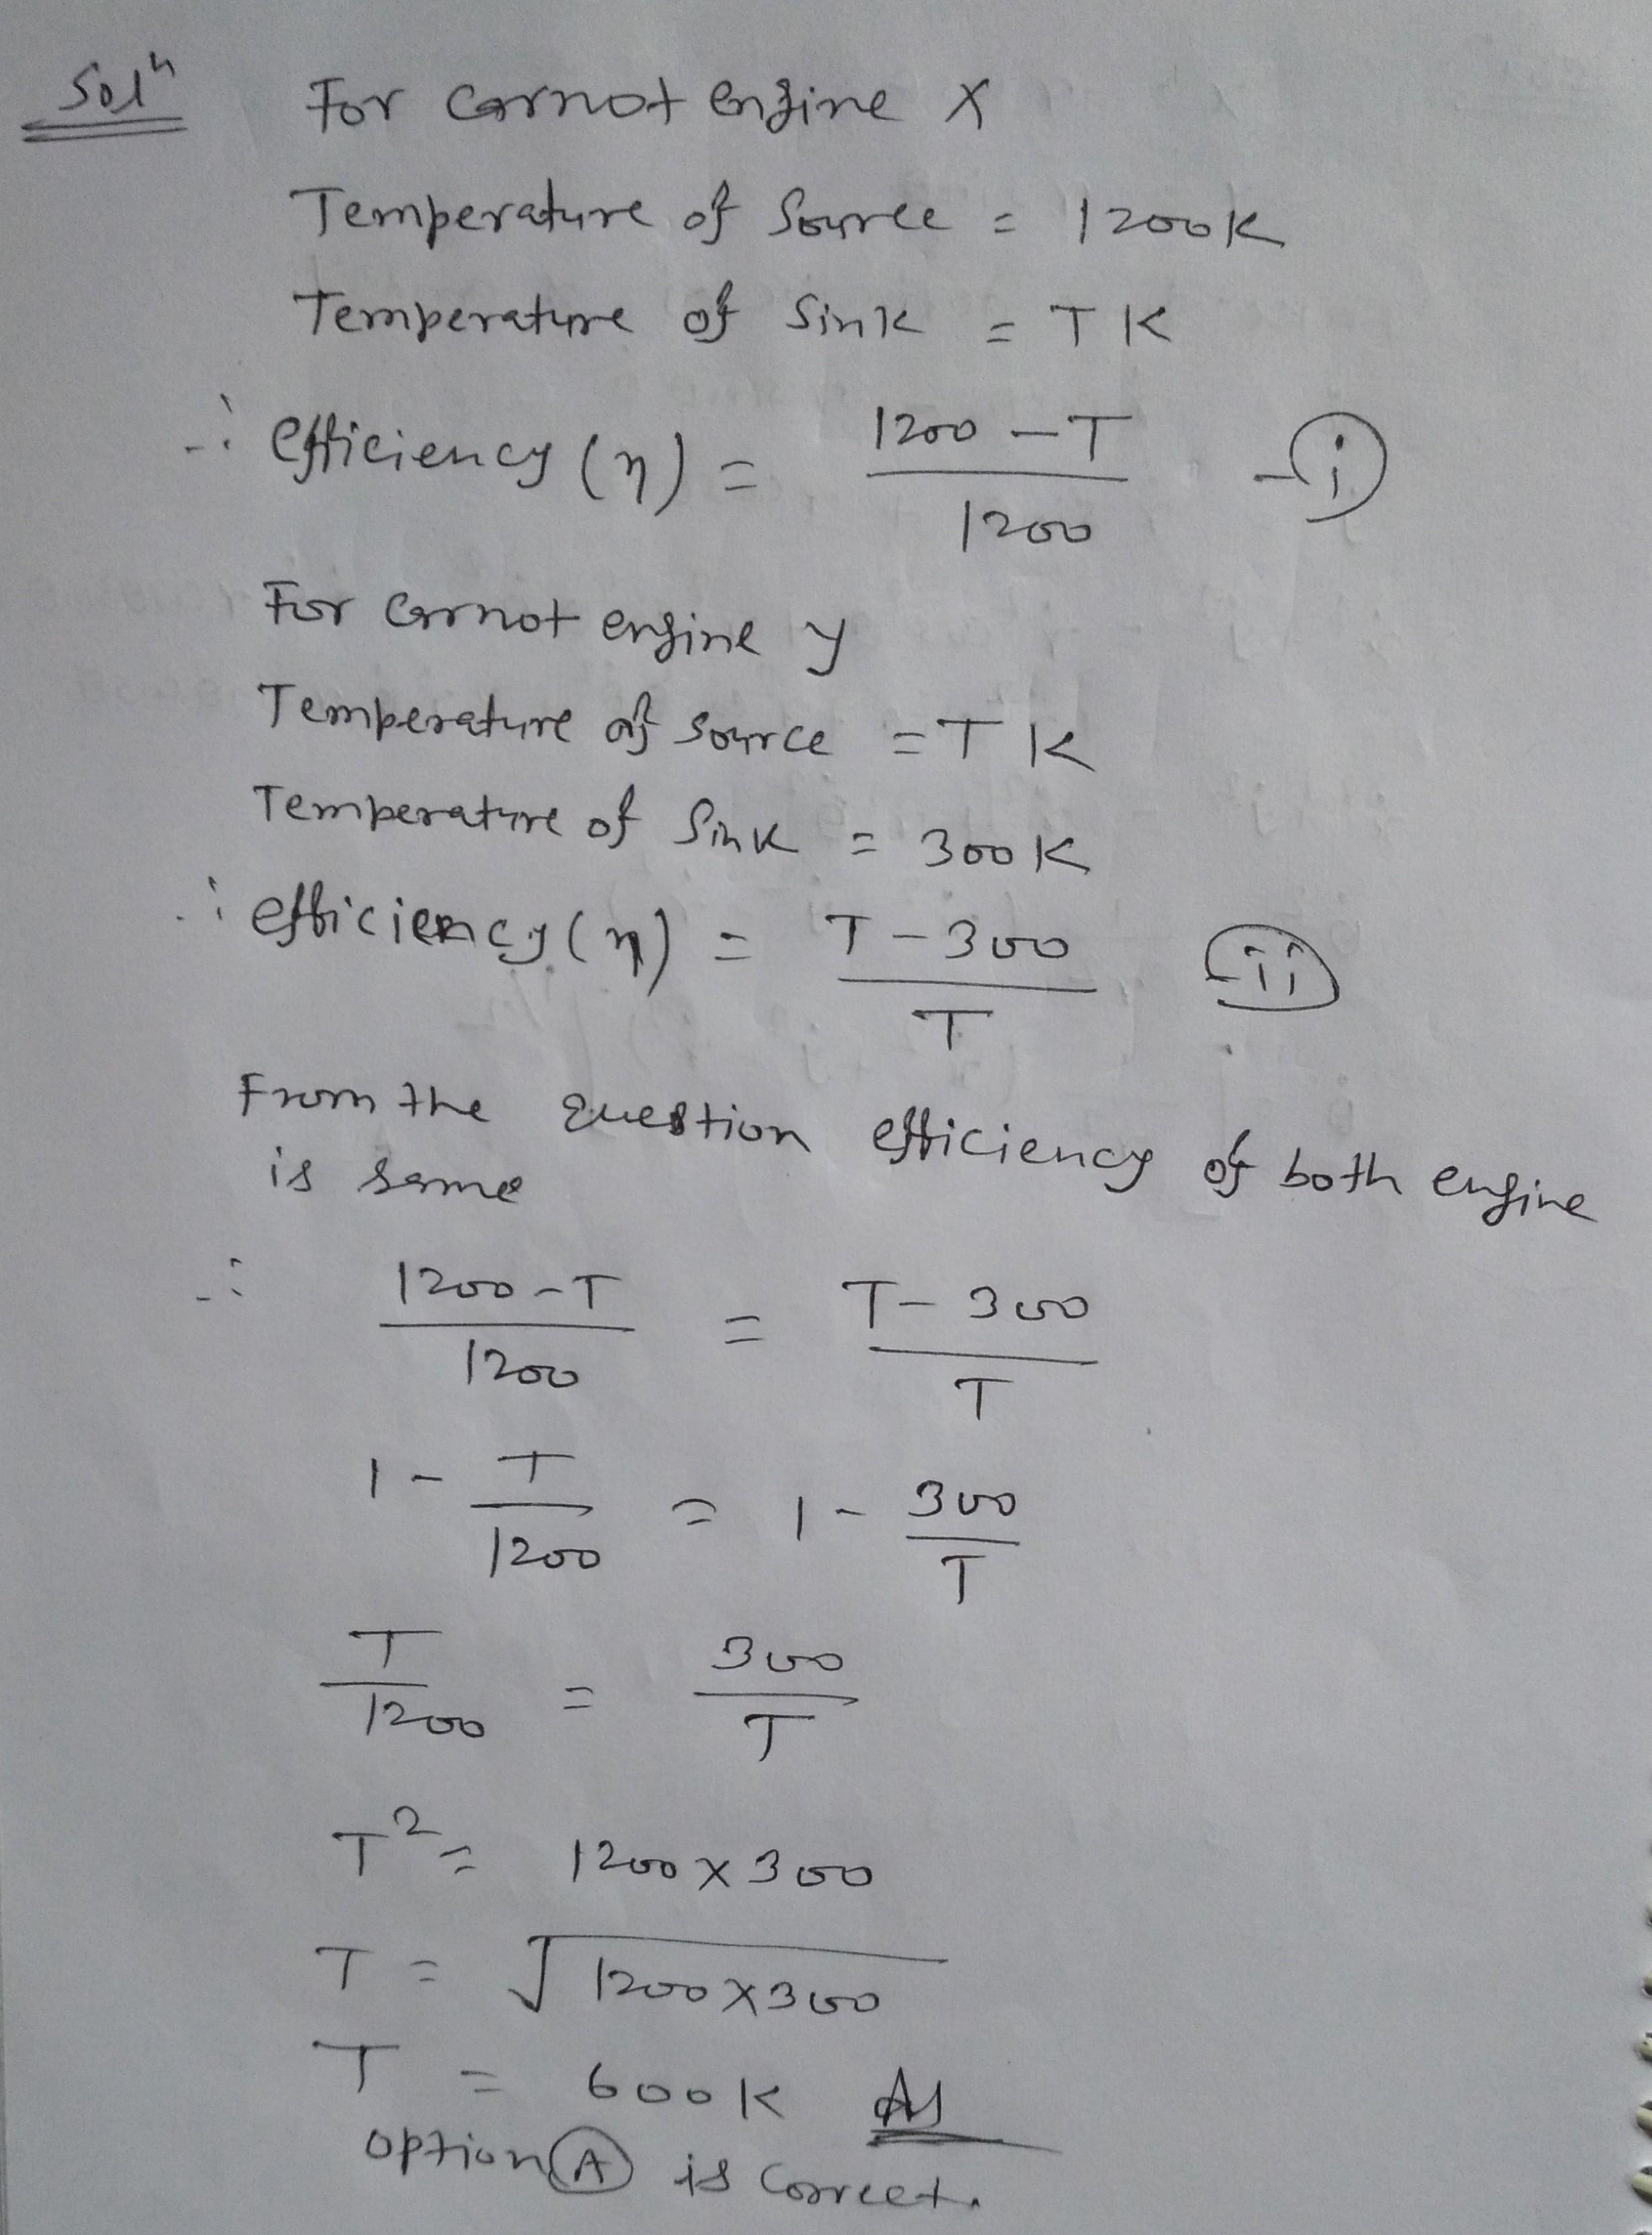 Solⁿ For Carnot engine X
Temperature of Source = 1200K
Temperature of Sink = T K
∴ efficiency (η) = (1200 - T)/1200 - (i)
For Carnot engine y
Temperature of source = T K
Temperature of Sink = 300 K
∴ efficiency (η) = (T - 300)/T - (ii)
From the question efficiency of both engine
is same
∴ (1200 - T)/1200 = (T - 300)/T
1 - T/1200 = 1 - 300/T
T/1200 = 300/T
T² = 1200 x 300
T = √(1200 x 300)
T = 600K As
option (A) is correct.